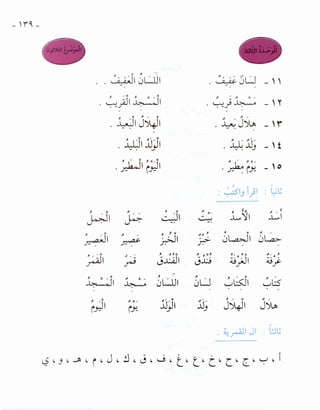 - ١٣٩ -
الوحدة الثالثة الموضوع الثلاثون
١١ - لِسَانٌ عَفِيفٌ . اللِّسَانُ الْعَفِيفُ . .
١٢ - مَسْجِدٌ قَرِيبٌ . الْمَسْجِدُ الْقَرِيبُ .
١٣ - هِلَالٌ بَعِيدٌ . الْهِلَالُ الْبَعِيدُ .
١٤ - وَلَدٌ بَلِيدٌ . الْوَلَدُ الْبَلِيدُ .
١٥ - يَوْمٌ مَطِيرٌ . الْيَوْمُ الْمَطِيرُ .
ثانياً : اقرأ واكتب :
أَسَدٌ الْأَسَدُ بَيْتٌ الْبَيْتُ جَمَلٌ الْجَمَلُ
حِصَانٌ الْحِصَانُ خُبْزٌ الْخُبْزُ عَصِيرٌ الْعَصِيرُ
غُرْفَةٌ الْغُرْفَةُ فُنْدُقٌ الْفُنْدُقُ قَمَرٌ الْقَمَرُ
كِتَابٌ الْكِتَابُ لِسَانٌ اللِّسَانُ مَسْجِدٌ الْمَسْجِدُ
هِلَالٌ الْهِلَالُ وَلَدٌ الْوَلَدُ يَوْمٌ الْيَوْمُ
ثالثاً : ال القمرية :
أ ، ب ، ج ، ح ، خ ، ع ، غ ، ف ، ق ، ك ، ل ، م ، هـ ، و ، ي